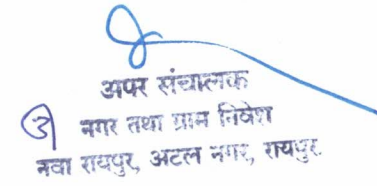 अपर संचालक
नगर तथा ग्राम निवेश
नवा रायपुर, अटल नगर, रायपुर